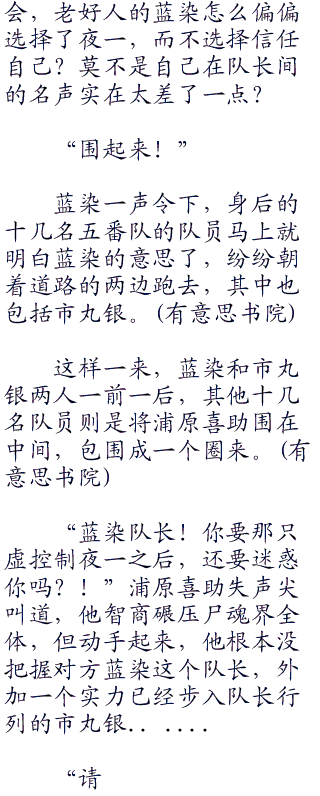 会，老好人的蓝染怎么偏偏
选择了夜一，而不选择信任
自己？莫不是自己在队长间
的名声实在太差了一点？
“围起来！”
蓝染一声令下，身后的
十几名五番队的队员马上就
明白蓝染的意思了，纷纷朝
着道路的两边跑去，其中也
包括市丸银。（有意思书院）
这样一来，蓝染和市丸
银两人一前一后，其他十几
名队员则是将浦原喜助围在
中间，包围成一个圈来。（有
意思书院）
“蓝染队长！你要那只
虚控制夜一之后，还要迷惑
你吗？！”浦原喜助失声尖
叫道，他智商碾压尸魂界全
体，但动手起来，他根本没
把握对方蓝染这个队长，外
加一个实力已经步入队长行
列的市丸银．．．．．．
“请